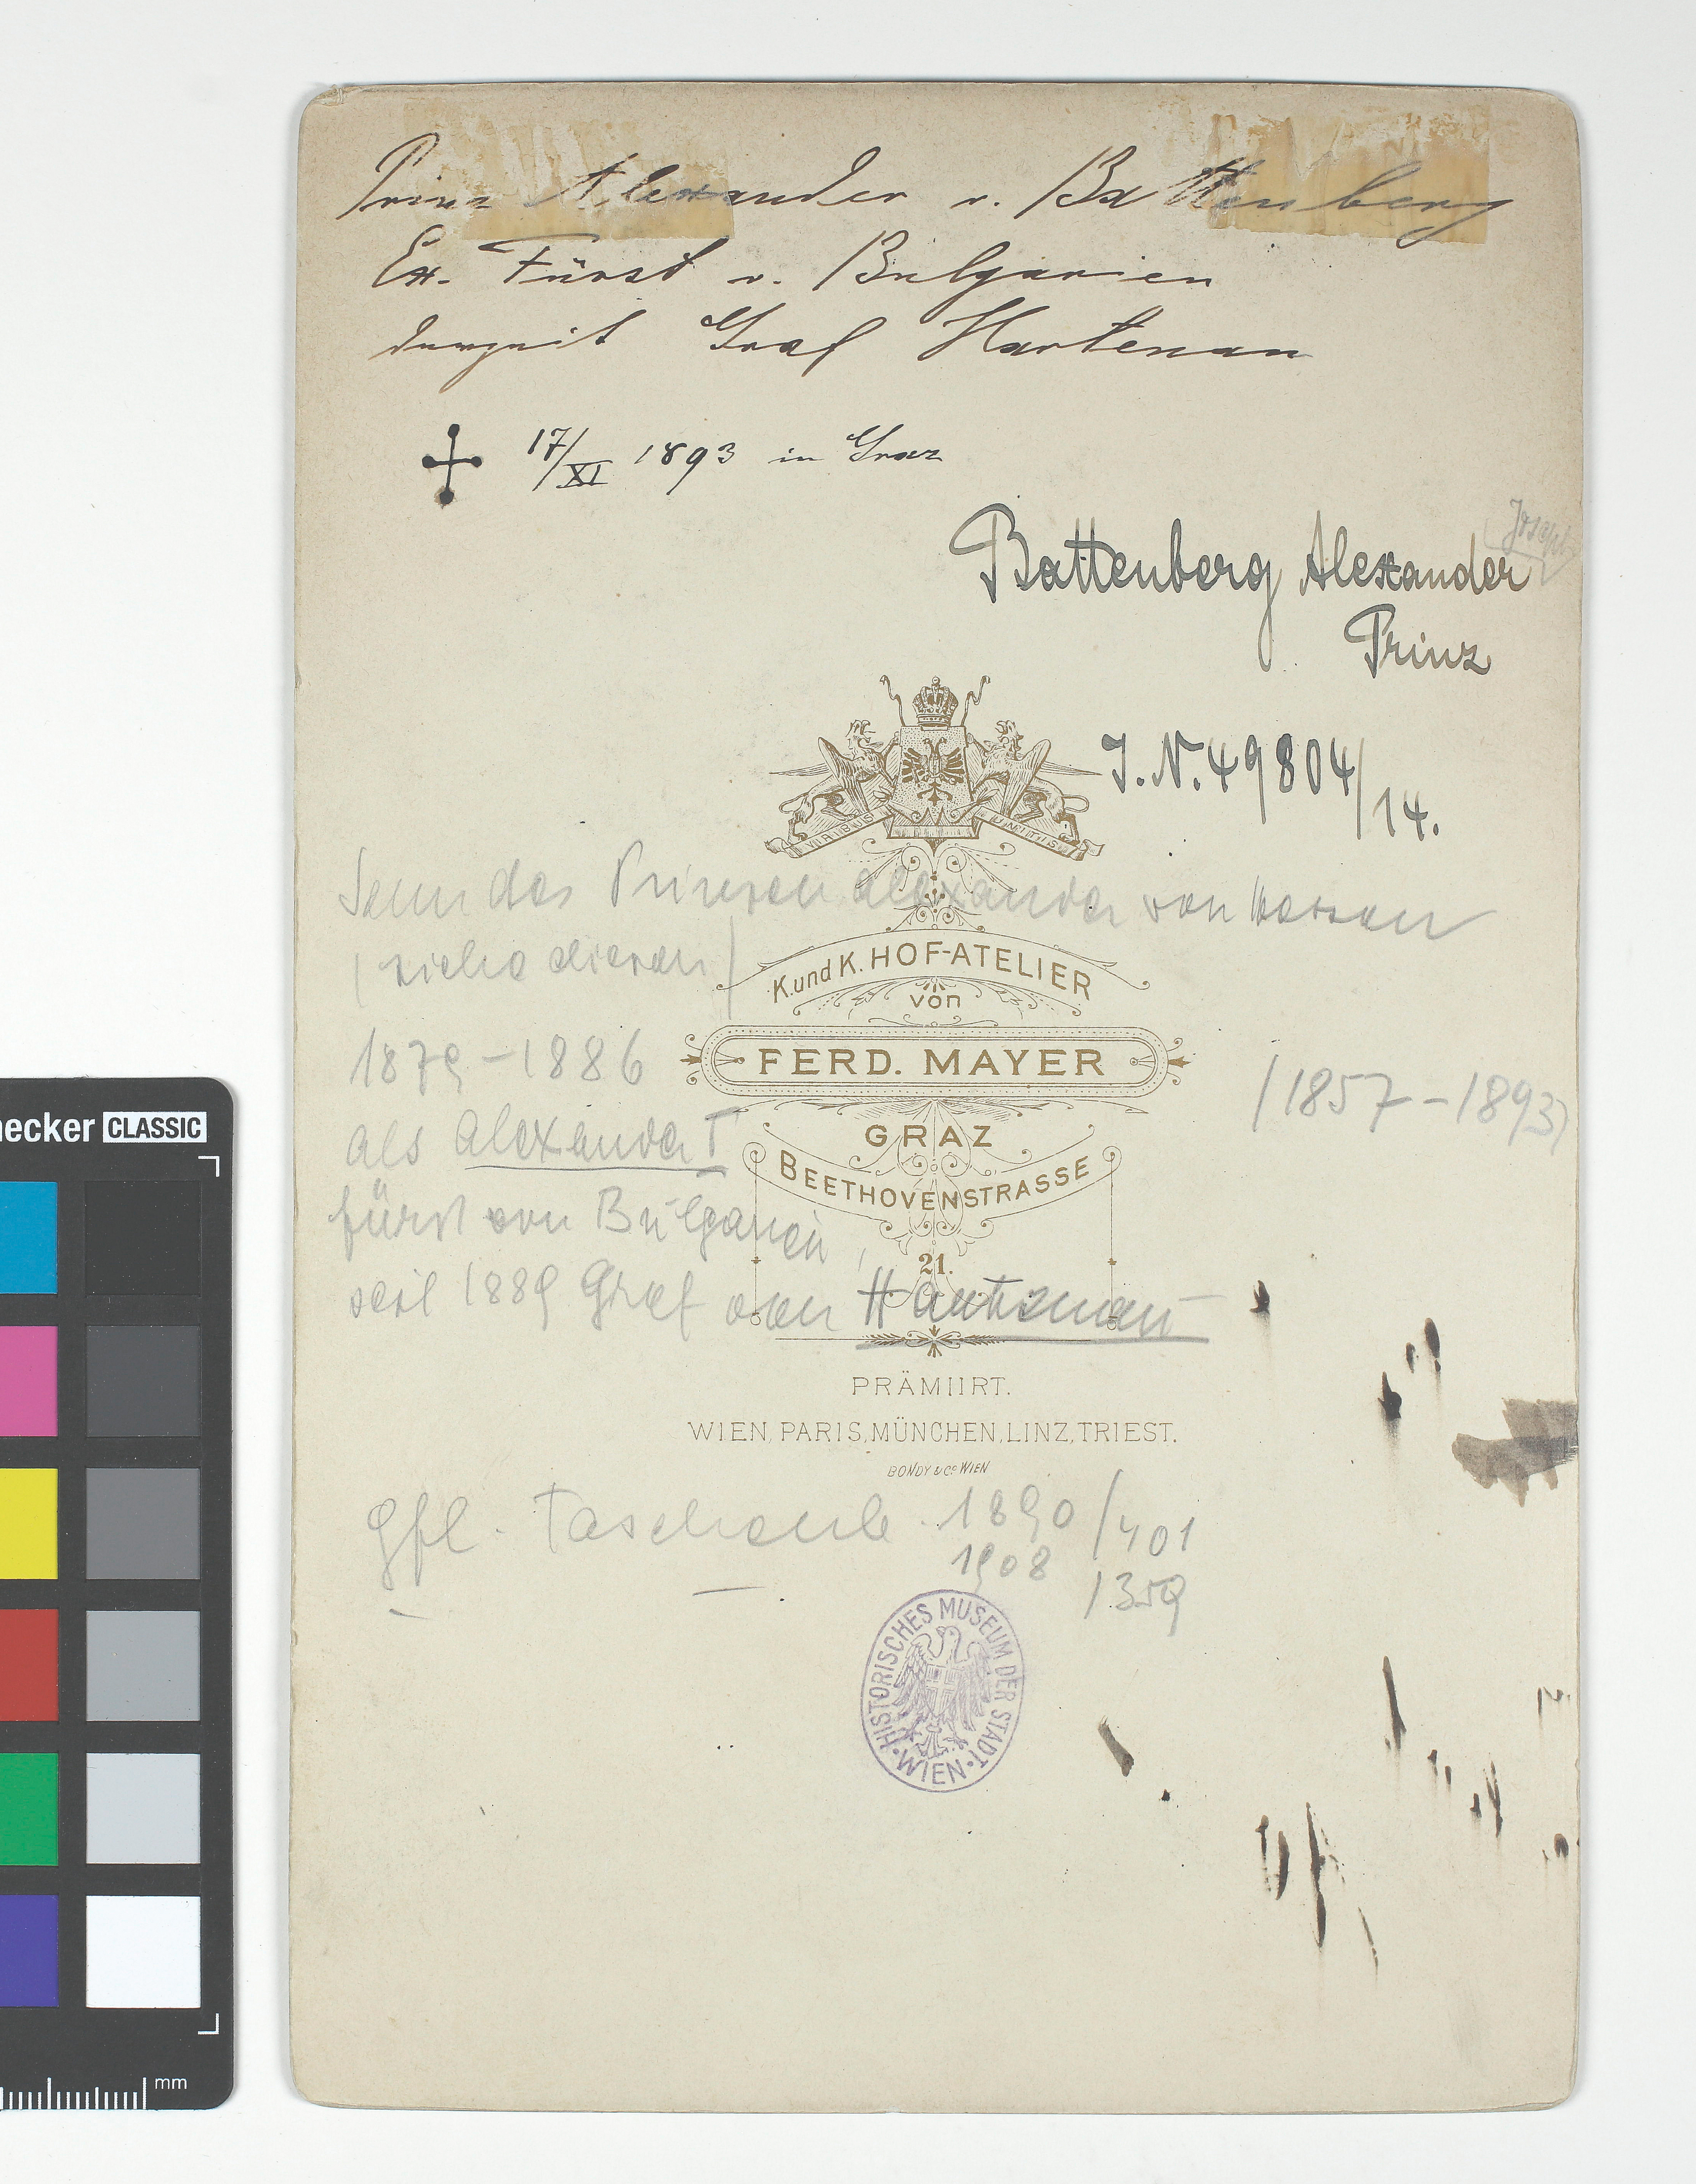 Prinz Alexander v. Battenberg
Ex. Fürst v. Bulgarien
derzeit Graf Hartenau
17/XI 1893 in Graz
(Joseph)
Battenberg Alexander
Prinz
J.N. 49804/14.
VIRIBUS UNITIS
Sohn des Prinzen Alexander von Hessen
(siehe diesen)
K. und K. HOF-ATELIER
von
FERD. MAYER
1879-1886
(1857-1893)
als Alexander I
GRAZ
BEETHOVENSTRASSE
Fürst von Bulgarien,
21.
seit 1889 Graf von Hartenau
PRÄMIIRT.
WIEN, PARIS, MÜNCHEN, LINZ, TRIEST.
BONDY & Co WIEN
Gfl. Taschenb. 1890/401
1908/359
HISTORISCHES MUSEUM DER STADT
WIEN
hecker CLASSIC
mm